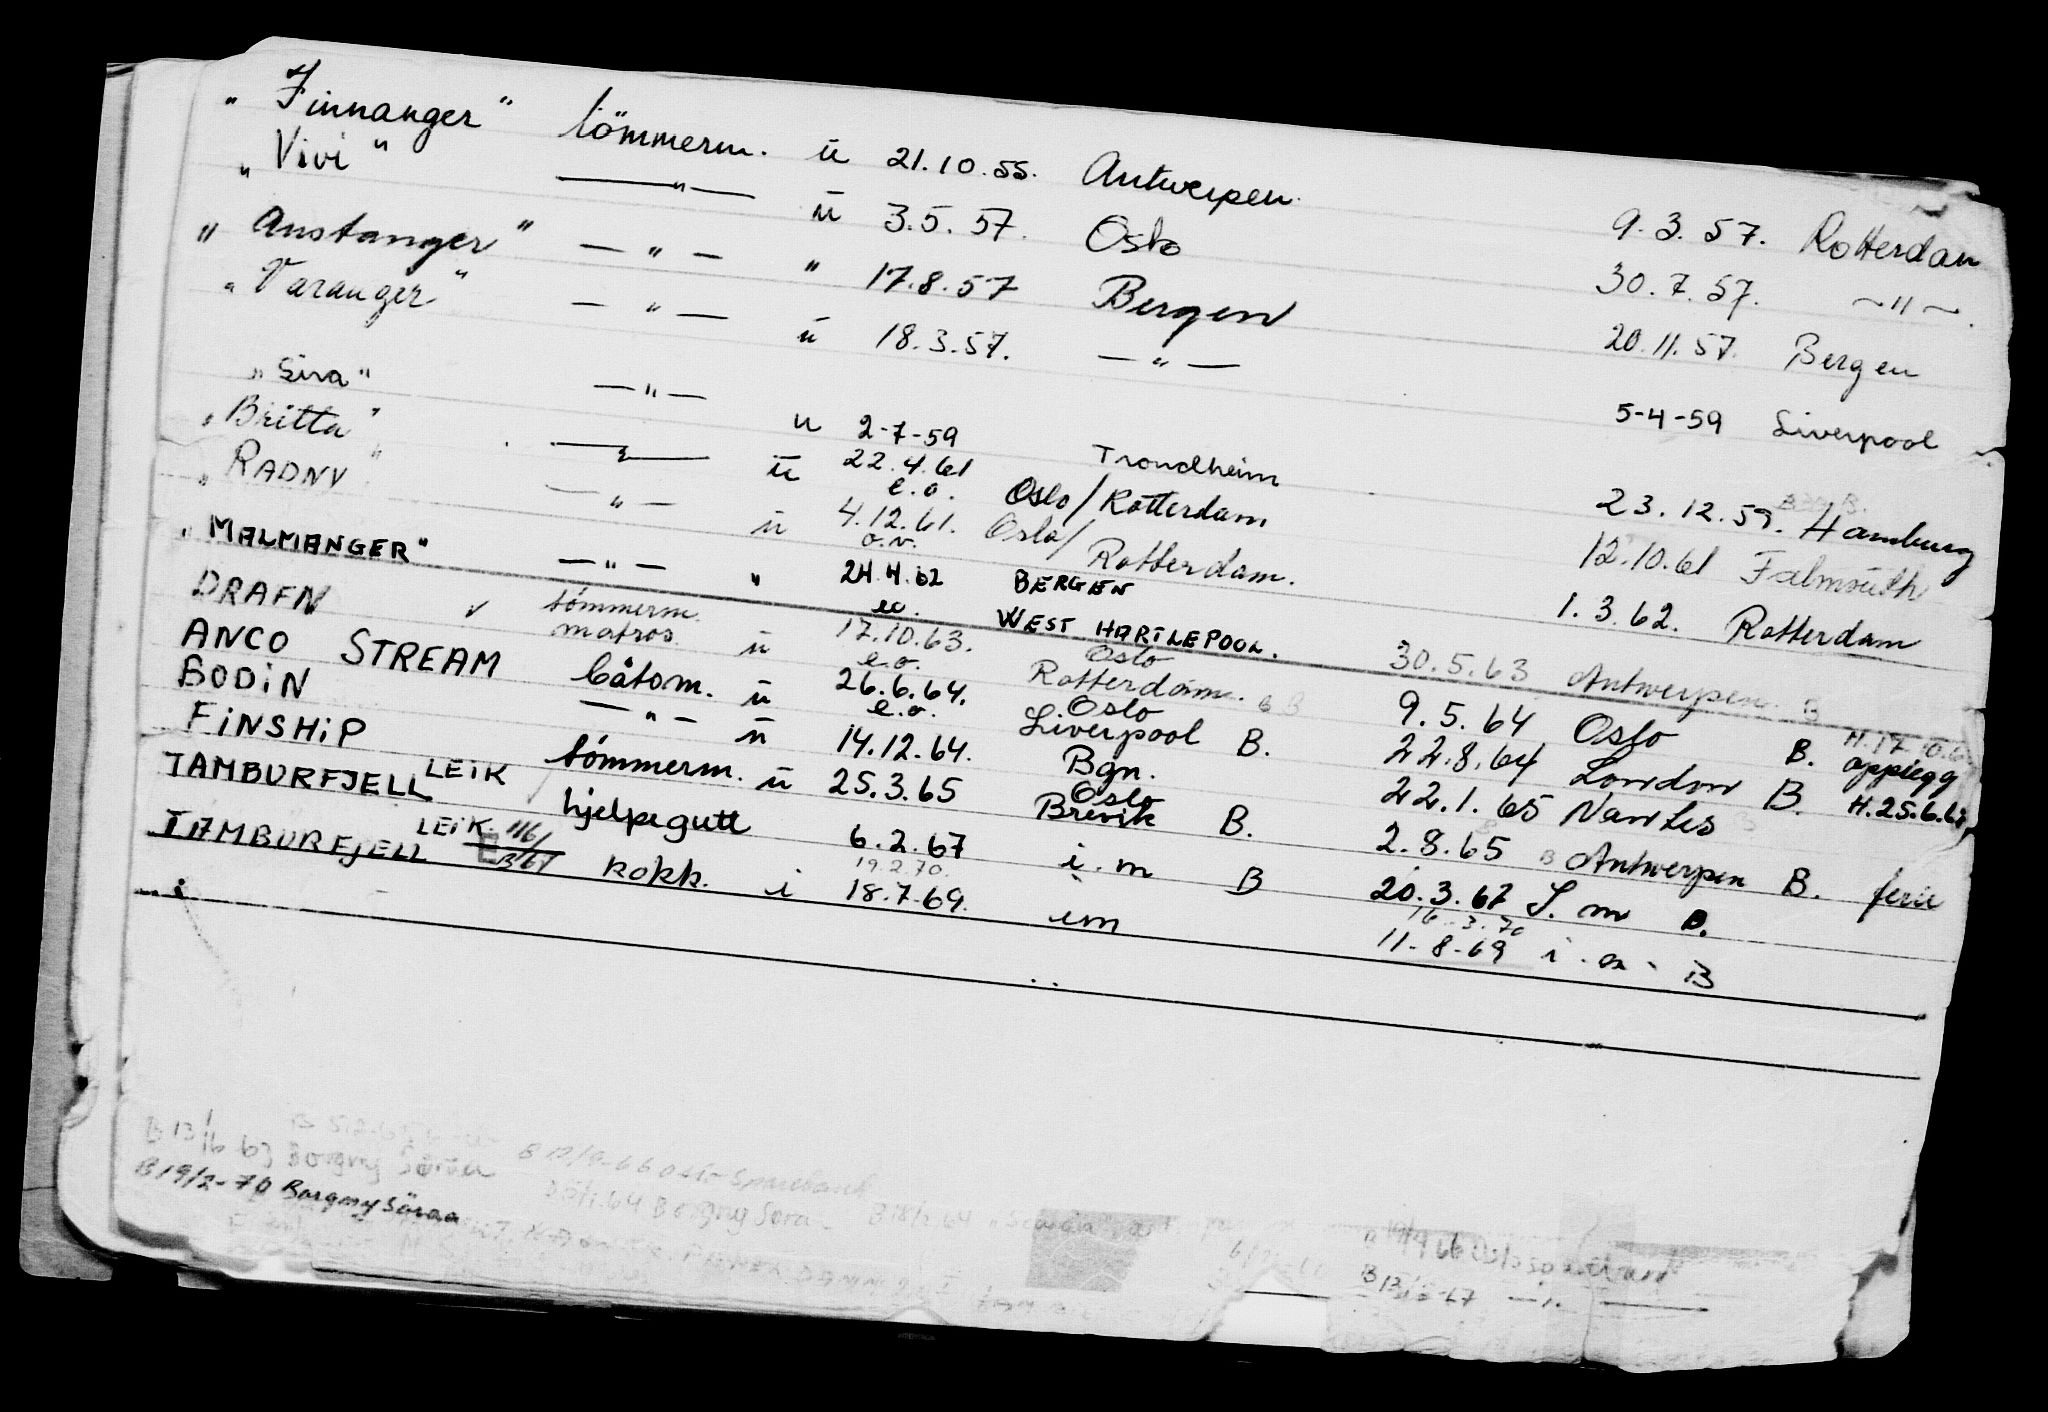 „ Finnanger " tömmerm. ü 21.10.55. Antwerpen. 9.3.57. Rotterdam
„ Vivi " — " — ü 3.5.57. Oslo 30.7.57. ~ " ~
" Austanger " — " — " 17.8.57 Bergen 20.11.57. Bergen
" Varanger " — " — ü 18.3.57. — " — 5-4-59 Liverpool
„ Sira " — " — u 2-7-59 Trondheim 23.12.59. Hamburg
„ Britta " — " — ü 22.4.61 e.o. Oslo/Rotterdam 12.10.61 Falmouth
„ RADNY — " — ü 4.12.61. o.v. Oslo/Rotterdam. 1.3.62. Rotterdam
„ MALMANGER " — " — " 24.4.62 eo. BERGEN WEST HARTLEPOOL. 30.5.63 Antwerpen. B
DRAFN v tömmerm. matros. ü 17.10.63. e.o. Oslo Rotterdam. B 9.5.64 Oslo B. opplegg
ANCO STREAM båtsm. ü 26.6.64. e.o. Oslo Liverpool B. 22.8.64 London B. H.25.6.
BODIN — " — ü 14.12.64. Bgn. 22.1.65 Nantes
FINSHIP tömmerm. ü 25.3.65 Oslo Brevik B. 2.8.65 B Antwerpen B. ferie
TAMBURFJELL LEIK hjelpegutt 6.2.67 i.m B 20.3.67 I.m B.
19.2.70. 16.3.70
TAMBURFJELL LEIK kokk. i 18.7.69. im 11-8-69 i.m. B
B 13/16 63 Borgny Söraa
B 19/2-70 Borgny Söraa
64 Borgny Sora
B 18/2 64
B 19/9 66 Oslo
B 13/3-67 — " —